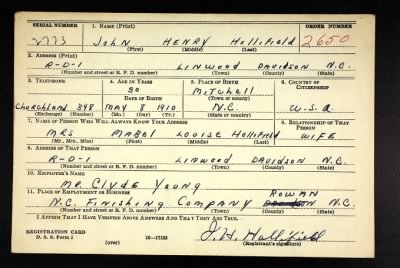 SERIAL NUMBER 1. NAME (Print) ORDER NUMBER
2773 JOHN HENRY HOLLIFIELD 2650
(First) (Middle) (Last)
2. ADDRESS (Print)
R-D-1 LINWOOD DAVIDSON N.C.
(Number and street or R. F. D. number) (Town) (County) (State)
3. TELEPHONE 4. AGE IN YEARS 5. PLACE OF BIRTH 6. COUNTRY OF CITIZENSHIP
30 MITCHELL
DATE OF BIRTH (Town or county)
Churchland 398 MAY 8 1910 N.C. U.S.A.
(Exchange) (Number) (Mo.) (Day) (Yr.) (State or country)
7. NAME OF PERSON WHO WILL ALWAYS KNOW YOUR ADDRESS 8. RELATIONSHIP OF THAT PERSON
MRS MABEL LOUISE HOLLIFIELD WIFE
(Mr., Mrs., Miss) (First) (Middle) (Last)
9. ADDRESS OF THAT PERSON
R-D-1 LINWOOD DAVIDSON N.C.
(Number and street or R. F. D. number) (Town) (County) (State)
10. EMPLOYER'S NAME
MR. CLYDE YOUNG
11. PLACE OF EMPLOYMENT OR BUSINESS ROWAN
N.C. FINISHING COMPANY N.C.
(Number and street or R. F. D. number) (Town) (County) (State)
I AFFIRM THAT I HAVE VERIFIED ABOVE ANSWERS AND THAT THEY ARE TRUE.
REGISTRATION CARD J. H. Hollifield
D. S. S. Form 1 (over) 16-17105 (Registrant's signature)